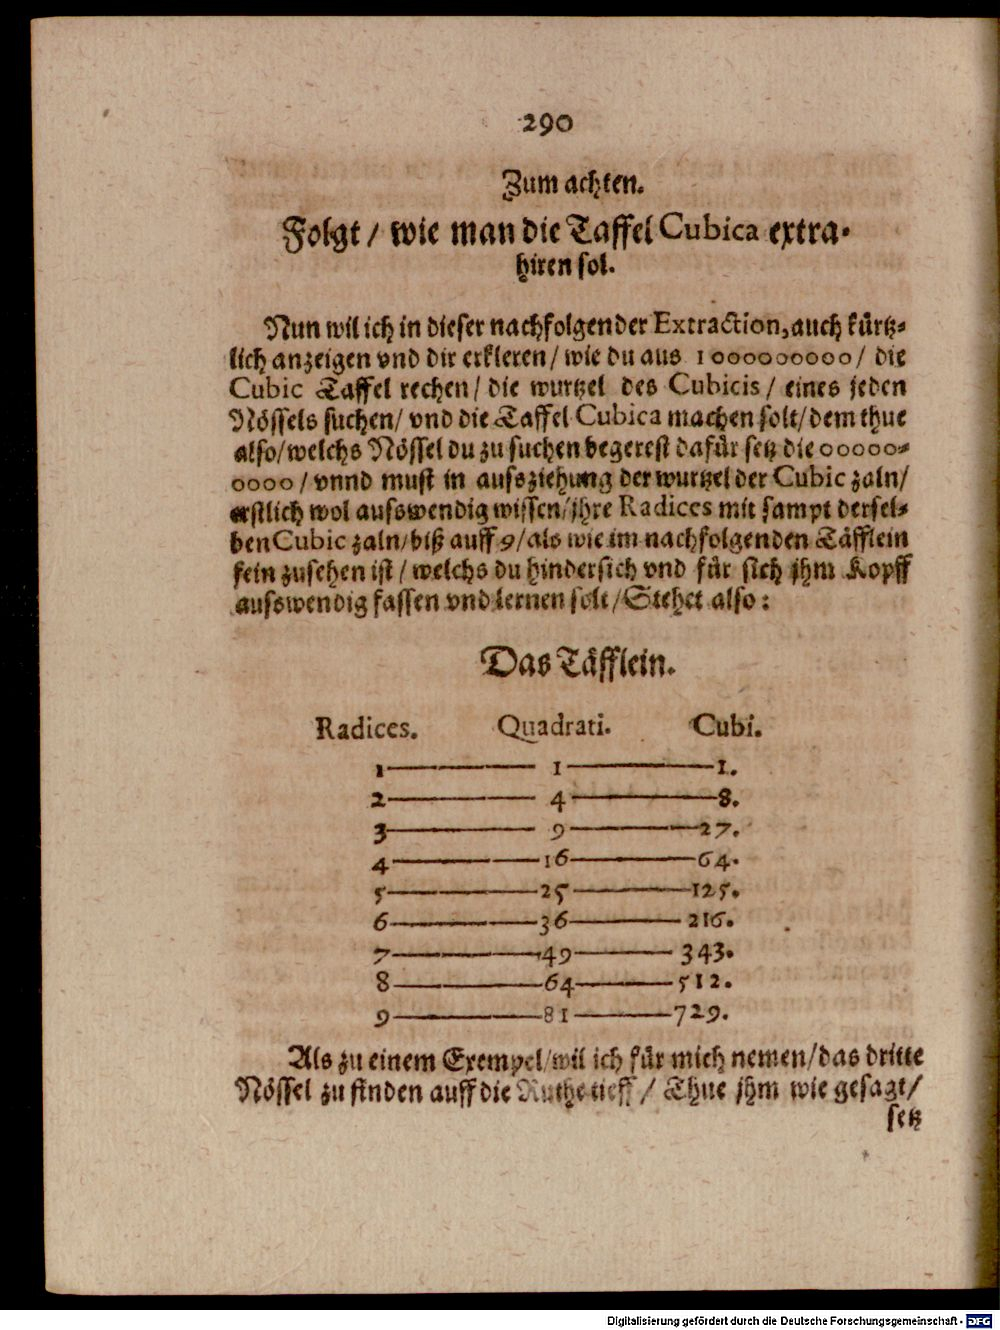 290
Zum achten.
Folgt / wie man die Taffel Cubica extra-
hiren sol.
Nun wil ich in dieser nachfolgender Extraction, auch kürtz-
lich anzeigen vnd dir erkleren / wie du aus 1000000000 / die
Cubic Taffel rechen / die wurtzel des Cubicis / eines jeden
Nössels suchen / vnd die Taffel Cubica machen solt / dem thue
also / welchs Nössel du zu suchen begerest dafür setz die 00000-
0000 / vnnd must in aufsziehung der wurtzel der Cubic zaln /
erstlich wol aufswendig wissen / jhre Radices mit sampt dersel-
ben Cubic zaln / biß auff 9 / als wie im nachfolgenden Täfflein
fein zusehen ist / welchs du hindersich vnd für sich jhm Kopff
aufswendig fassen vnd lernen solt / Stehet also:
Das Täfflein.
Radices. Quadrati. Cubi.
1 — 1 — 1.
2 — 4 — 8.
3 — 9 — 27.
4 — 16 — 64.
5 — 25 — 125.
6 — 36 — 216.
7 — 49 — 343.
8 — 64 — 512.
9 — 81 — 729.
Als zu einem Exempel / wil ich für mich nemen / das dritte
Nössel zu finden auff die Ruthe tieff / Thue jhm wie gesagt /
setz
Digitalisierung gefördert durch die Deutsche Forschungsgemeinschaft - DFG